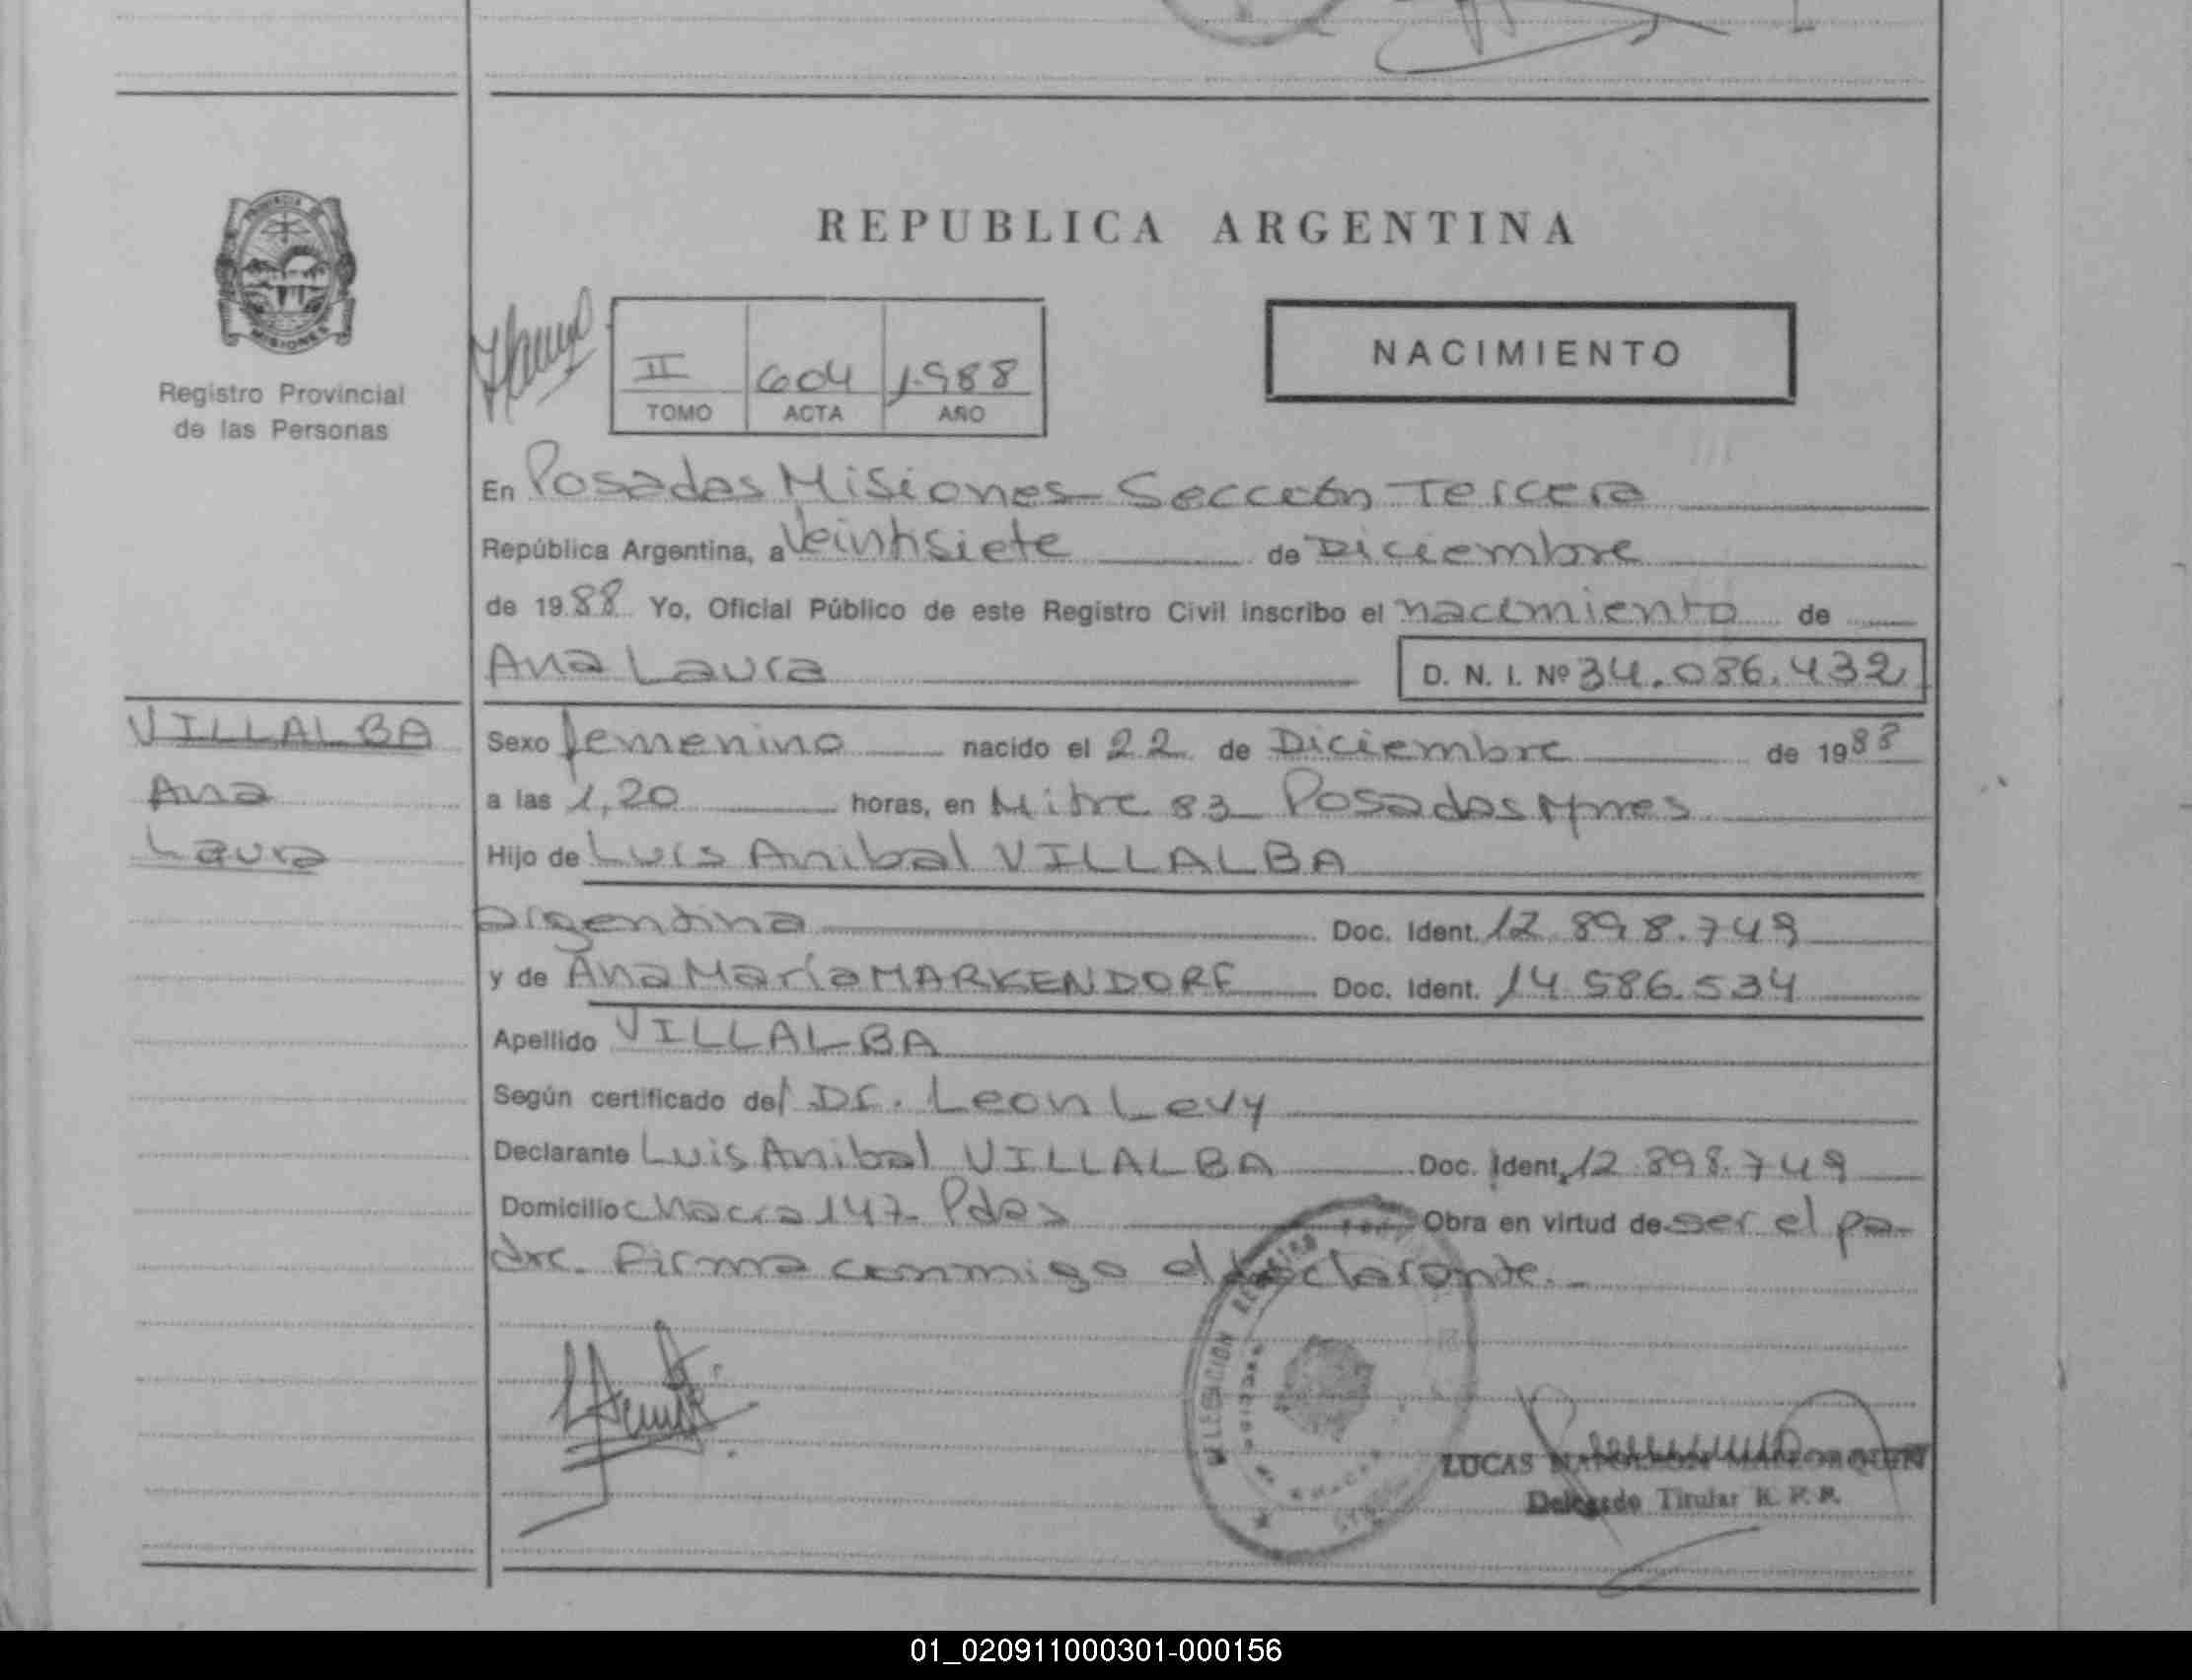 REPUBLICA ARGENTINA
PROVINCIA DE
MISIONES
Registro Provincial
de las Personas
II 604 1988
TOMO ACTA AÑO
NACIMIENTO
En Posadas Misiones Sección Tercera
República Argentina, a Veintisiete de Diciembre
de 1988 Yo, Oficial Público de este Registro Civil inscribo el nacimiento de
Ana Laura D. N. I. Nº 34.086.432
VILLALBA
Ana
Laura
Sexo femenino nacido el 22 de Diciembre de 1988
a las 1,20 horas, en Mitre 83 Posadas Mnes
Hijo de Luis Anibal VILLALBA
argentina Doc. Ident. 12.898.749
y de Ana María MARKENDORF Doc. Ident. 14.586.534
Apellido VILLALBA
Según certificado del Dr. Leon Levy
Declarante Luis Anibal VILLALBA Doc. Ident. 12.898.749
Domicilio chacra 147- Pdas Obra en virtud de ser el pa-
dre. Firma conmigo el declarante.-
DELEGACION REGISTRO
LUCAS
Delegado Titular R. P. P.
01_020911000301-000156